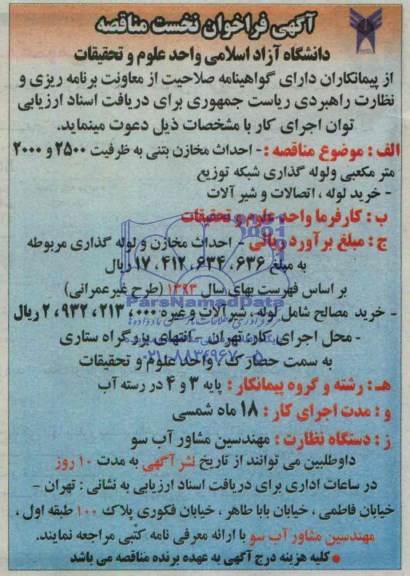 آگهی فراخوان نخست مناقصه
دانشگاه آزاد اسلامی واحد علوم و تحقیقات
از پیمانکاران دارای گواهینامه صلاحیت از معاونت برنامه ریزی و
نظارت راهبردی ریاست جمهوری برای دریافت اسناد ارزیابی
توان اجرای کار با مشخصات ذیل دعوت مینماید.
الف : موضوع مناقصه :- احداث مخازن بتنی به ظرفیت ۲۵۰۰ و ۲۰۰۰
متر مکعبی ولوله گذاری شبکه توزیع
- خرید لوله ، اتصالات و شیر آلات
ب : کارفرما واحد علوم و تحقیقات
ج : مبلغ برآورد ریالی - احداث مخازن و لوله گذاری مربوطه
به مبلغ ۱۷،۴۱۲،۶۳۴،۶۳۶ ریال
بر اساس فهرست بهای سال ۱۳۹۳ (طرح غیرعمرانی)
ParsNamadData
- خرید مصالح شامل لوله ، شیر آلات و غیره ۲،۹۳۲،۲۱۳،۰۰۰ ریال
- محل اجرای کار: تهران - انتهای بزرگراه ستاری
به سمت حصارک - واحد علوم و تحقیقات
هـ : رشته و گروه پیمانکار : پایه ۳ و ۴ در رسته آب
و : مدت اجرای کار : ۱۸ ماه شمسی
ز : دستگاه نظارت : مهندسین مشاور آب سو
داوطلبین می توانند از تاریخ نشر آگهی به مدت ۱۰ روز
در ساعات اداری برای دریافت اسناد ارزیابی به نشانی : تهران -
خیابان فاطمی ، خیابان بابا طاهر ، خیابان فکوری پلاک ۱۰۰ طبقه اول ،
مهندسین مشاور آب سو با ارائه معرفی نامه کتبی مراجعه نمایند.
● کلیه هزینه درج آگهی به عهده برنده مناقصه می باشد